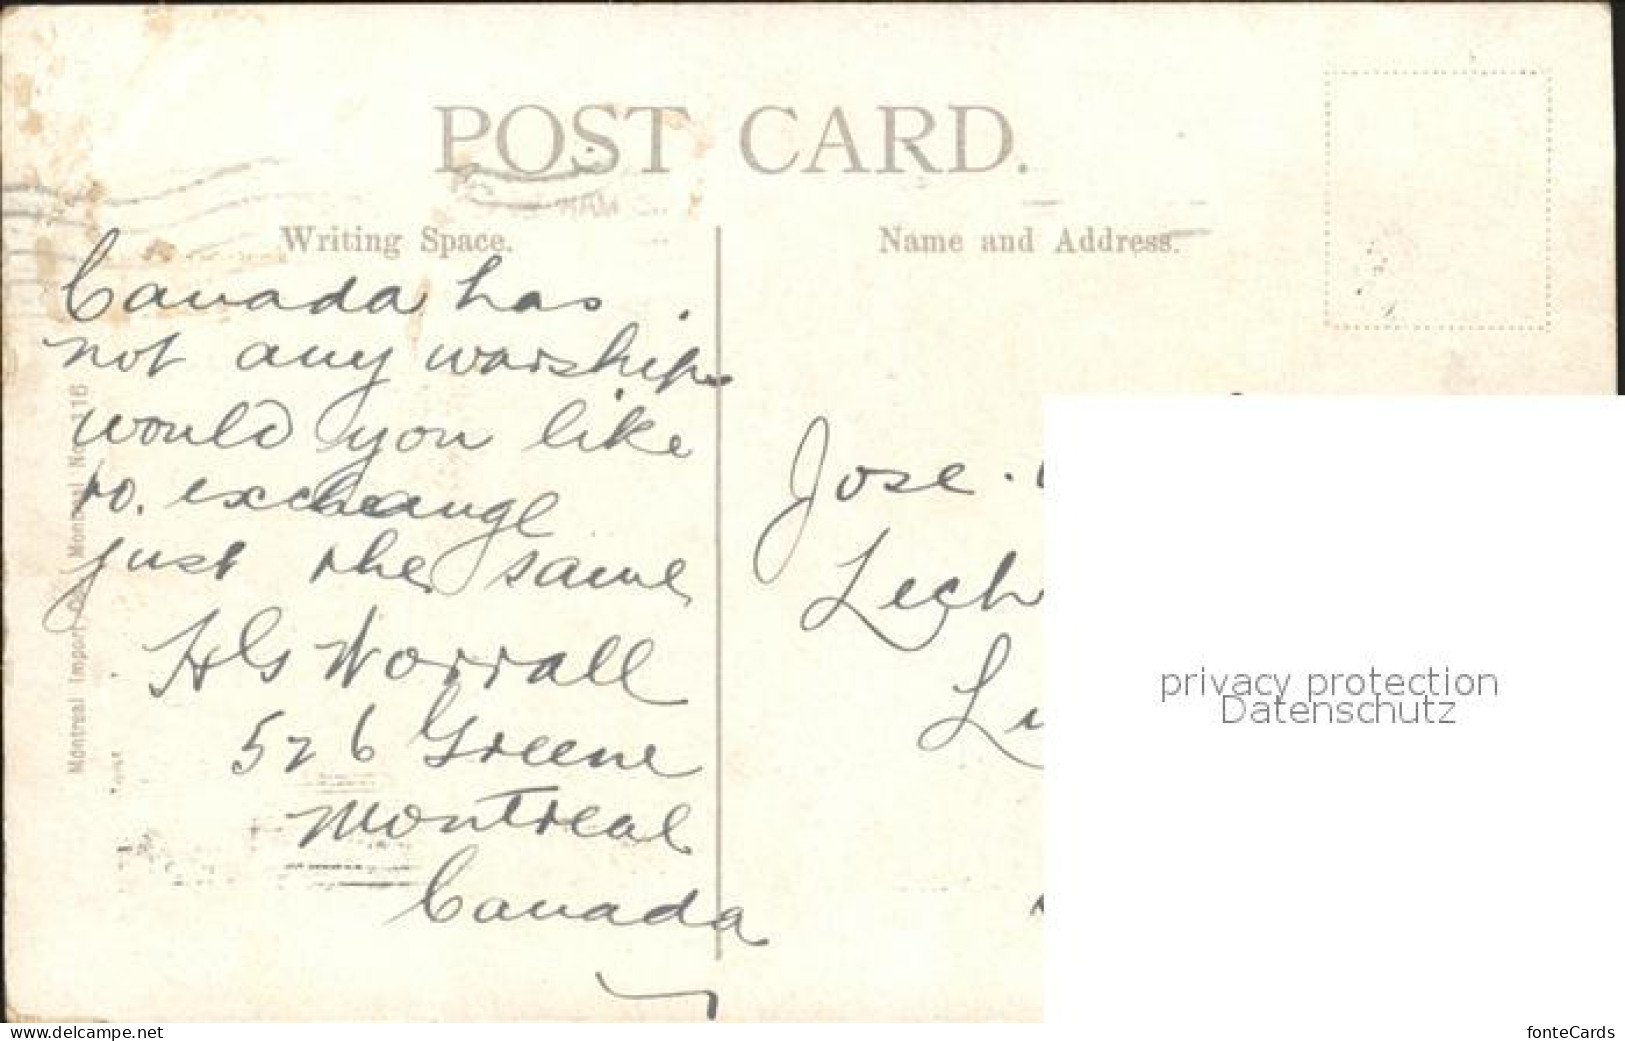 POST CARD.
Writing Space.
Name and Address.
Canada has
not any warships
would you like
to. exchange
just the same
HG Worrall
526 Greene
Montreal
Canada
Montreal Import Co., Montreal No. 116
Jose.
Lech
privacy protection
Datenschutz
www.delcampe.net
fonteCards